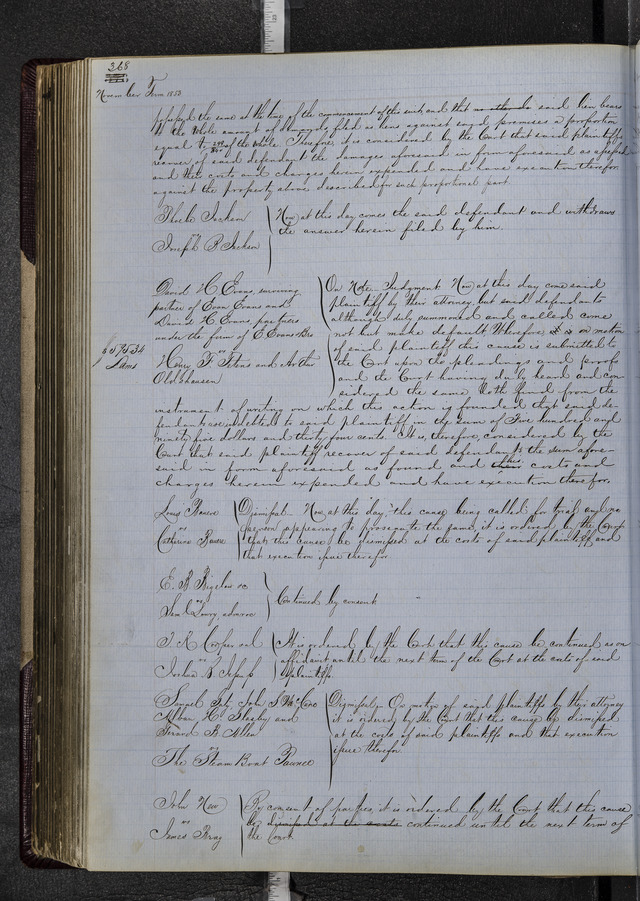 368
November Term 1853
possessed the same at the time of the commencement of this suit, and that no other said lien bears
to the whole amount of demands filed as liens against said premises a proportion
equal to of the whole. Therefore, it is considered by the Court that said plaintiffs
recover of said defendant the damages aforesaid in form aforesaid as
and their costs and charges herein expended and have execution therefor
against the property above described for such proportional part.
Now at this day comes the said defendant and withdraws
the answer herein filed by him.
vs
Joseph B
David H Evans surviving
partner of Evan Evans and
David H Evans, partners
under the firm of E Evans & Bro
vs
Henry F and Arthur
Oldshausen
$595.34
Dams
On Note Judgment Now at this day come said
plaintiff by their attorney, but said defendants
although duly summoned and called come
not but make default Wherefore on motion
of said plaintiff this cause is submitted to
the Court upon the pleadings and proofs
and the Court having duly heard and con-
sidered the same, doth find from the
instrument of writing on which this action is founded that said de-
fendants are indebted to said plaintiff in the sum of Five hundred and
ninety five dollars and thirty four cents. It is therefore, considered by the
Court that said plaintiff recover of said defendants the sum afore-
said in form aforesaid as found and his costs and
charges herein expended and have execution therefor.
Louis Bauer
vs
Catherine Bauer
Dismissal. Now at this day, this cause being called for trial, and no
person appearing to prosecute the same, it is ordered by the Court
that this cause be dismissed at the costs of said plaintiff, and
that execution issue therefor
E. B Bigelow &c
vs
Saml Lowry, admr &c
Continued by consent
J. K Cooper et al
vs
Joshua B
It is ordered by the Court that this cause be continued as on
affidavit until the next term of the Court at the costs of said
plaintiff
Samuel Gaty, John S McCune
H. and
Gerard B Allen
vs
The Steam Boat Pawnee
Dismissal. On motion of said plaintiffs by their attorney
it is ordered by the Court that this cause be dismissed
at the costs of said plaintiffs and that execution
issue therefor
John How
vs
James Bray
By consent of parties, it is ordered by the Court that this cause
be dismissed at the costs continued until the next term of
the Court